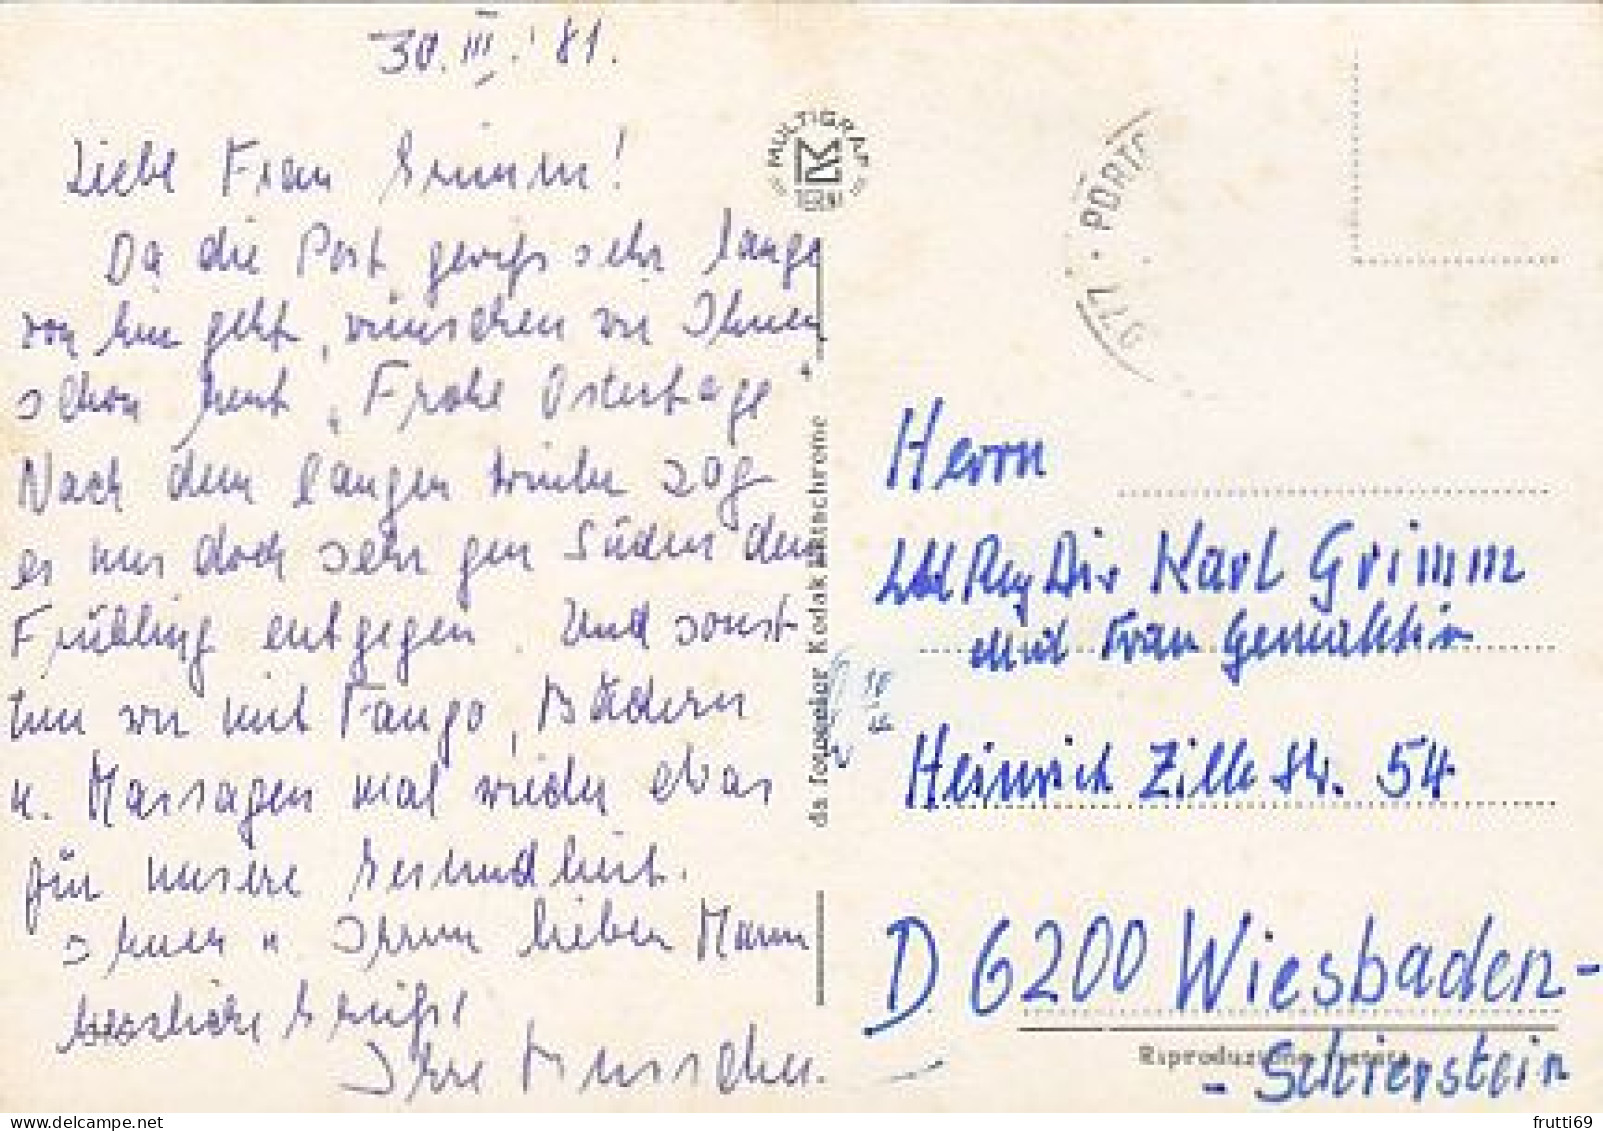 30. III. '81.
Liebe Frau Grimm!
Da die Post gewiß sehr lange
von hier geht, wünschen wir Ihnen
schon heut „Frohe Ostertage
Nach dem langen Winter zog
es uns doch sehr gen Süden dem
Frühling entgegen. Und sonst
tun wir mit Fango, Bädern
u. Massagen mal wieder etwas
für unsere Gesundheit.
Ihnen u. Ihrem lieben Mann
herzliche Grüße
Ihre
MULTIGRAF
TERNI
da fotocolor Kodak Ektachrome
PORTO
Herrn
Ltd Reg Dir Karl Grimm
und Frau Gemahlin
Heinrich Zille Str. 54
D 6200 Wiesbaden-
Riproduzione vietata
- Schierstein
frutti69